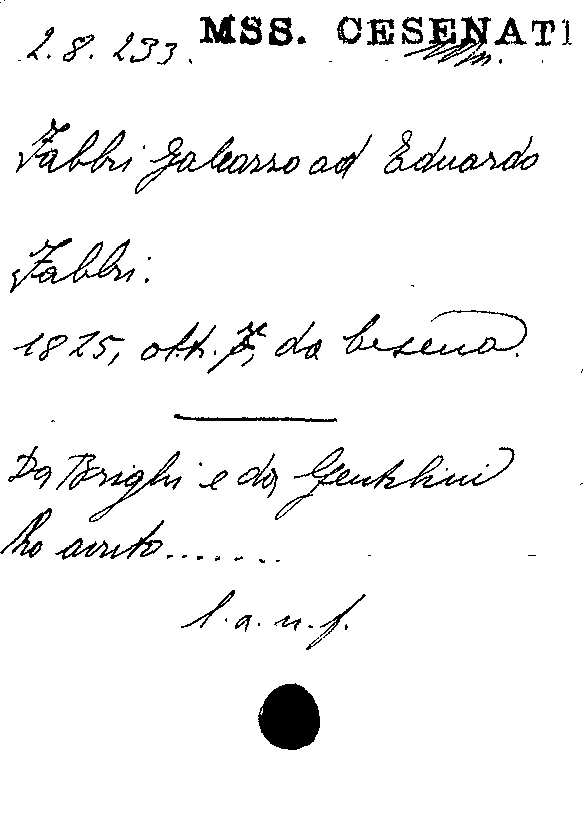 MSS. CESENATI
2.8.233.
Fabbri Galeazzo ad Eduardo
Fabbri.
1825, ott. 7, da Cesena.
Da Brighi e da Gentilini
ho avuto.......
l. a. n. f.